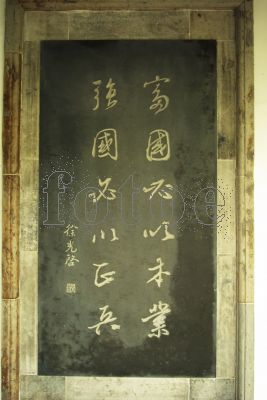 富國必以本業
強國必以正兵
徐光啓
fotoe